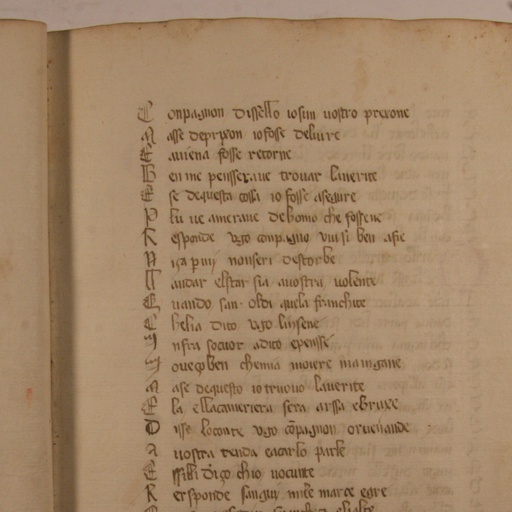 Conpagnon disselo io sun uostro prexone
Masse de prixon io fosse deliure
E auiena fosse retorne
Ben me penserave trouar lauerite
E se de questa cossa io fosse asegure
Plu ue amerave de homo che fos ne
Responde vgo conpagno vui si ben afie
Niça p uuj non seri destorbe
Mandar el star sia auostra uolente
Quando san oldi quela franchite
E belia dito vgo
Infra so cuor a dito e pensse
Ioueço ben che mia moiere ma ingane
Mase de questo io truouo lauerite
Ela ella coneriera sera arssa e bruxe
Disse lo conte vgo cōpagnon or ue nande
A uostra tenda e a carlo parle
E ssili diço chio uo cunte
Responde sanguį mile marce e gre